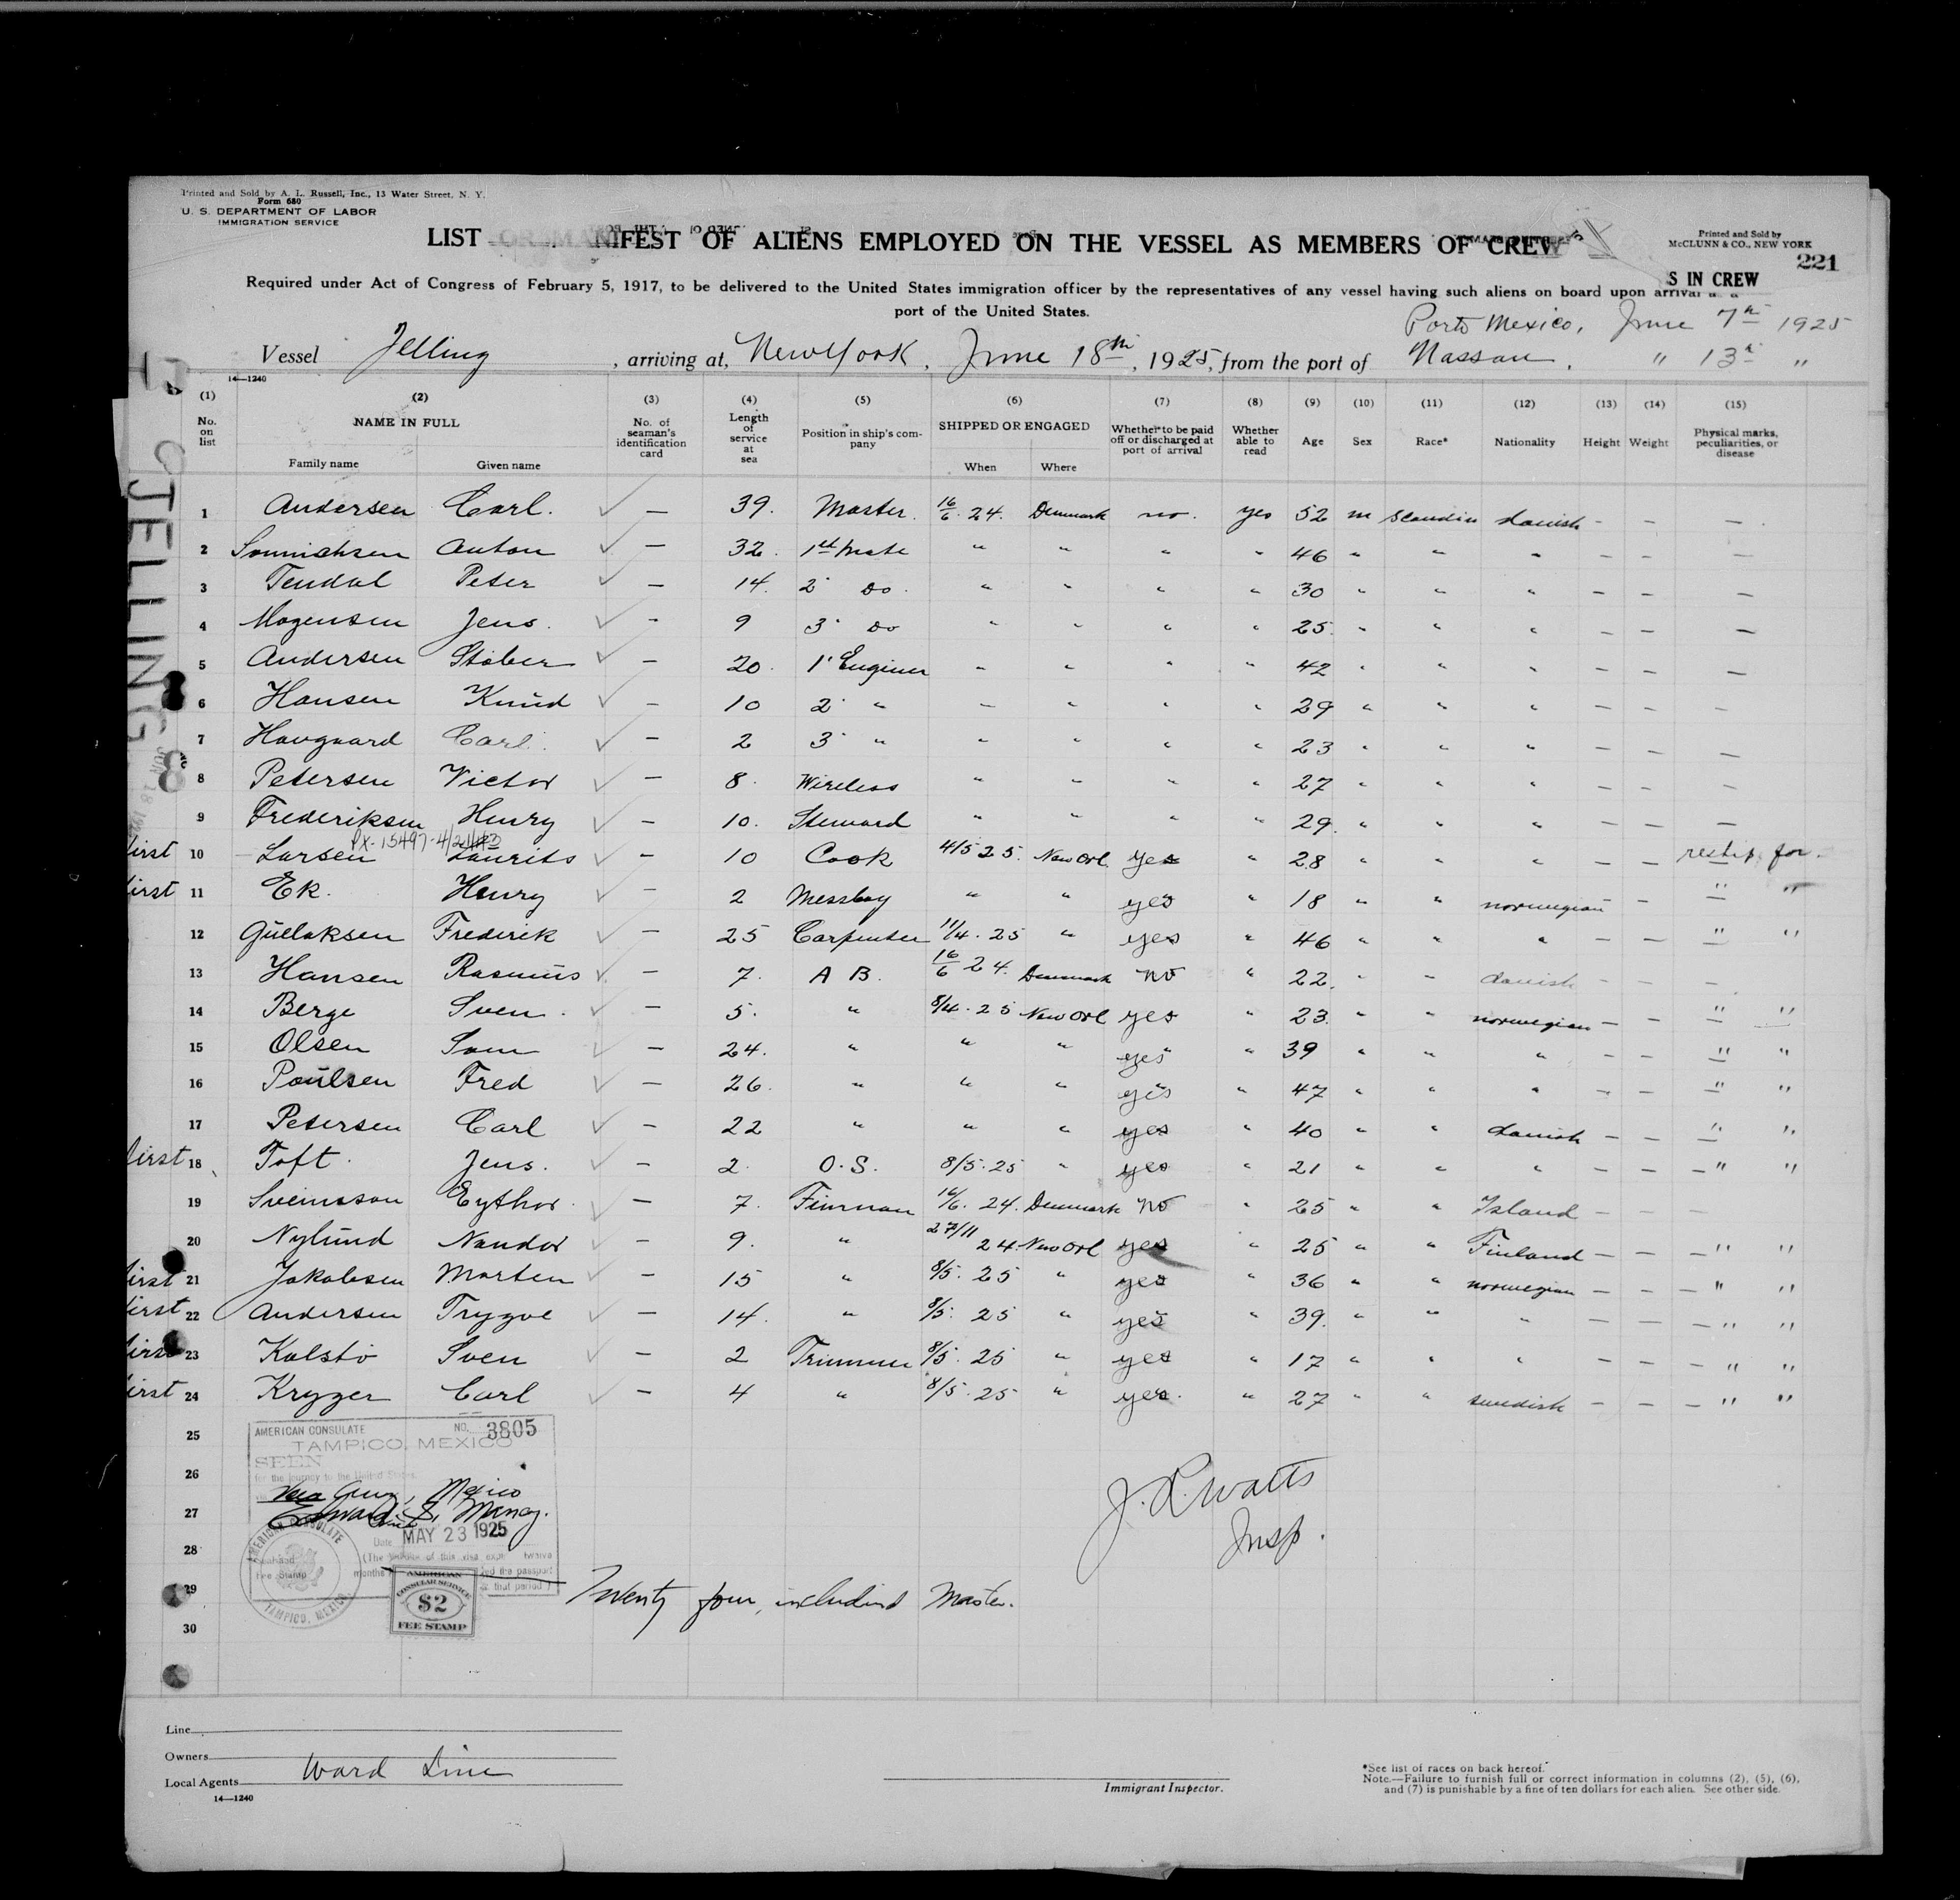 Printed and Sold by A. L. Russell, Inc., 13 Water Street, N. Y.
Form 680
U. S. DEPARTMENT OF LABOR
IMMIGRATION SERVICE
LIST OR MANIFEST OF ALIENS EMPLOYED ON THE VESSEL AS MEMBERS OF CREW
Printed and Sold by
McCLUNN & CO., NEW YORK
221
S IN CREW
Required under Act of Congress of February 5, 1917, to be delivered to the United States immigration officer by the representatives of any vessel having such aliens on board upon arrival at a
port of the United States.
Porto Mexico, June 7th 1925
Vessel Jelling, arriving at, New York, June 18th, 1925, from the port of Nassau, " 13th "
14—1240
(1) (2) (3) (4) (5) (6) (7) (8) (9) (10) (11) (12) (13) (14) (15)
No. on list NAME IN FULL Family name Given name No. of seaman's identification card Length of service at sea Position in ship's company SHIPPED OR ENGAGED When Where Whether to be paid off or discharged at port of arrival Whether able to read Age Sex Race* Nationality Height Weight Physical marks, peculiarities, or disease
1 Andersen Carl. ✓ — 39. Master. 16/6. 24. Denmark no. yes 52 m Scandin danish - - -
2 Sonnichsen Anton ✓ — 32. 1st Mate " " " " 46 " " " - - -
3 Tendal Peter ✓ — 14. 2' Do. " " " " 30 " " " - - -
4 Mogensen Jens. ✓ - 9 3' Do " " " " 25. " " " - - -
5 Andersen Stober ✓ — 20. 1' Enginer " " " " 42 " " " - - -
6 Hansen Knud ✓ — 10 2' " " " " " 29 " " " - - -
7 Havgaard Carl. ✓ — 2 3' " " " " " 23 " " " - - -
8 Petersen Victor ✓ — 8. Wireless " " " " 27 " " " - - -
9 Frederiksen Henry ✓ — 10. Steward " " " " 29. " " " - - -
first 10 Larsen Laurits ✓ — 10 Cook 4/5 25. New Orl. yes " 28 " " " - - reship for.
first 11 Ek. Henry ✓ — 2 Messboy " " yes " 18 " " norwegian - " "
12 Gullaksen Frederik ✓ — 25 Carpenter 11/4. 25 " yes " 46 " " " - - " "
13 Hansen Rasmus ✓ — 7. A B. 16/6 24. Denmark no " 22. " " danish - - -
14 Berge Sven. ✓ — 5. " 8/4. 25 New Orl yes " 23. " " norwegian - - " "
15 Olsen Sam ✓ — 24. " " " yes " 39 " " " - - " "
16 Poulsen Fred ✓ — 26. " " " yes " 47 " " " - - " "
17 Petersen Carl ✓ — 22 " " " yes " 40 " " danish - - " "
first 18 Toft. Jens. ✓ — 2. O. S. 8/5. 25 " yes " 21 " " " - - - " "
19 Sveinsson Eythor. ✓ — 7. Firman 16/6. 24. Denmark no " 25 " " Island - - -
20 Nylund Nandor ✓ — 9. " 27/11 24. New Orl yes " 25 " " Finland - - - " "
first 21 Jakobsen Morten ✓ — 15 " 8/5. 25 " yes " 36 " " norwegian - - - " "
first 22 Andersen Trygve ✓ — 14. " 8/5. 25 " yes " 39. " " " - - - " "
first 23 Kolstö Sven ✓ — 2 Trimmer 8/5. 25 " yes " 17 " " " - - - " "
first 24 Kryger Carl ✓ — 4 " 8/5. 25 " yes. " 27 " " swedish - - - " "
25
26
27
28
29
30
JELLING
AMERICAN CONSULATE NO. 3805
TAMPICO, MEXICO
SEEN
for the journey to the United States
Vera Cruz, Mexico
Date MAY 23 1925
AMERICAN CONSULATE
TAMPICO, MEXICO
AMERICAN
CONSULAR SERVICE
$2
FEE STAMP
J. L. Watts
Insp.
Twenty four, includind Master.
Line
Owners
Local Agents Ward Line
14—1240
Immigrant Inspector.
*See list of races on back hereof.
Note.—Failure to furnish full or correct information in columns (2), (5), (6),
and (7) is punishable by a fine of ten dollars for each alien. See other side.